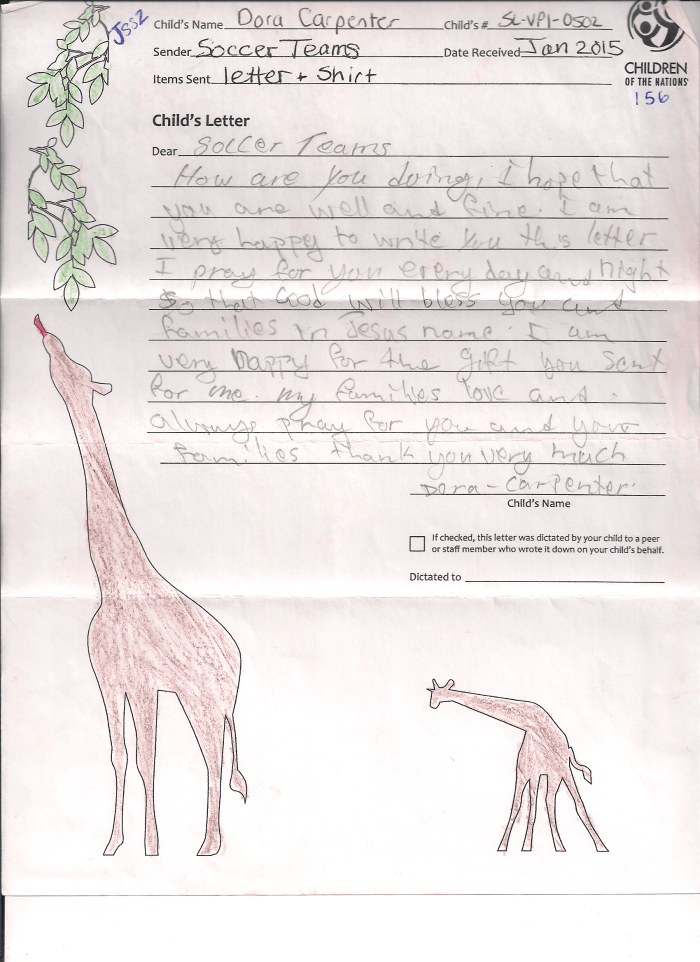 JSS2
Child's Name Dora Carpenter Child's # SL-VP1-0502
Sender Soccer Teams Date Received Jan 2015
Items Sent letter + Shirt
CHILDREN
OF THE NATIONS
156
Child's Letter
Dear Soccer Teams
How are you doing, I hope that
you are well and fine. I am
very happy to write you this letter
I pray for you every day and night
So that Good will bless you and
families in Jesus name. I am
very happy for the gift you sent
for me. my families love and
always pray for you and your
families thank you very much
Dora-Carpenter.
Child's Name
If checked, this letter was dictated by your child to a peer
or staff member who wrote it down on your child's behalf.
Dictated to